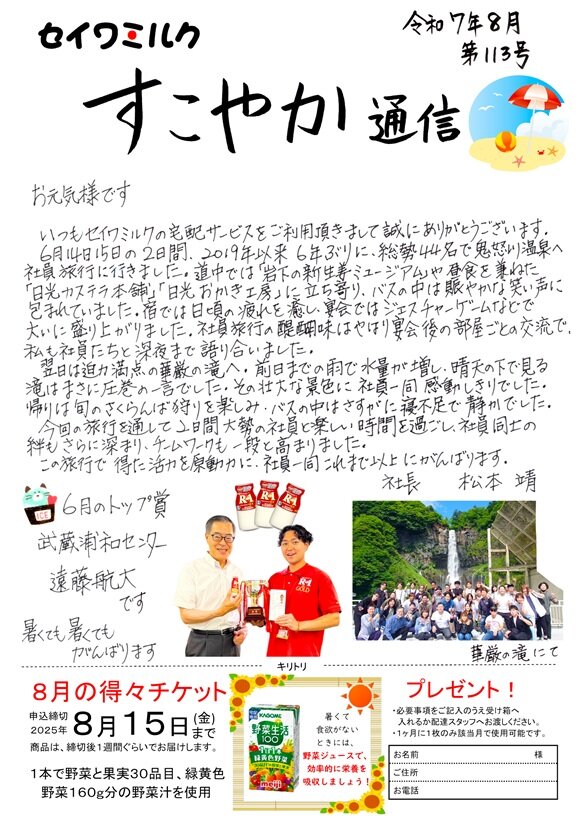 セイワミルク
令和7年8月
第113号
すこやか通信
お元気様です
いつもセイワミルクの宅配サービスをご利用頂きまして誠にありがとうございます。
6月14日15日の2日間、2019年以来6年ぶりに、総勢44名で鬼怒川温泉へ
社員旅行に行きました。道中では「岩下の新生姜ミュージアム」や昼食を兼ねた
「日光カステラ本舗」「日光おかき工房」に立ち寄り、バスの中は賑やかな笑い声に
包まれていました。宿では日頃の疲れを癒し、宴会ではジェスチャーゲームなどで
大いに盛り上がりました。社員旅行の醍醐味はやはり宴会後の部屋ごとの交流で、
私も社員たちと深夜まで語り合いました。
翌日は迫力満点の華厳の滝へ。前日までの雨で水量が増し、晴天の下で見る
滝はまさに圧巻の一言でした。その壮大な景色に社員一同感動しきりでした。
帰りは旬のさくらんぼ狩りを楽しみ、バスの中はさすがに寝不足で静かでした。
今回の旅行を通して2日間大勢の社員と楽しい時間を過ごし、社員同士の
絆もさらに深まり、チームワークも一段と高まりました。
この旅行で得た活力を原動力に、社員一同これまで以上にがんばります。
社長 松本 靖
ICE
6月のトップ賞
武蔵浦和センター
遠藤航大
です
暑くても暑くても
がんばります
R-1
R-1
R-1
R-1
GOLD
華厳の滝にて
キリトリ
8月の得々チケット
申込締切
2025年
8月15日(金)まで
商品は、締切後1週間ぐらいでお届けします。
1本で野菜と果実30品目、緑黄色
野菜160g分の野菜汁を使用
KAGOME
野菜生活
100
緑黄色野菜
meiji
暑くて
食欲がない
ときには、
野菜ジュースで、
効率的に栄養を
吸収しましょう!
プレゼント!
・必要事項をご記入のうえ受け箱へ
入れるか配達スタッフへお渡しください。
・1ヶ月に1枚のみ該当月で使用可能です。
お名前 様
ご住所
お電話